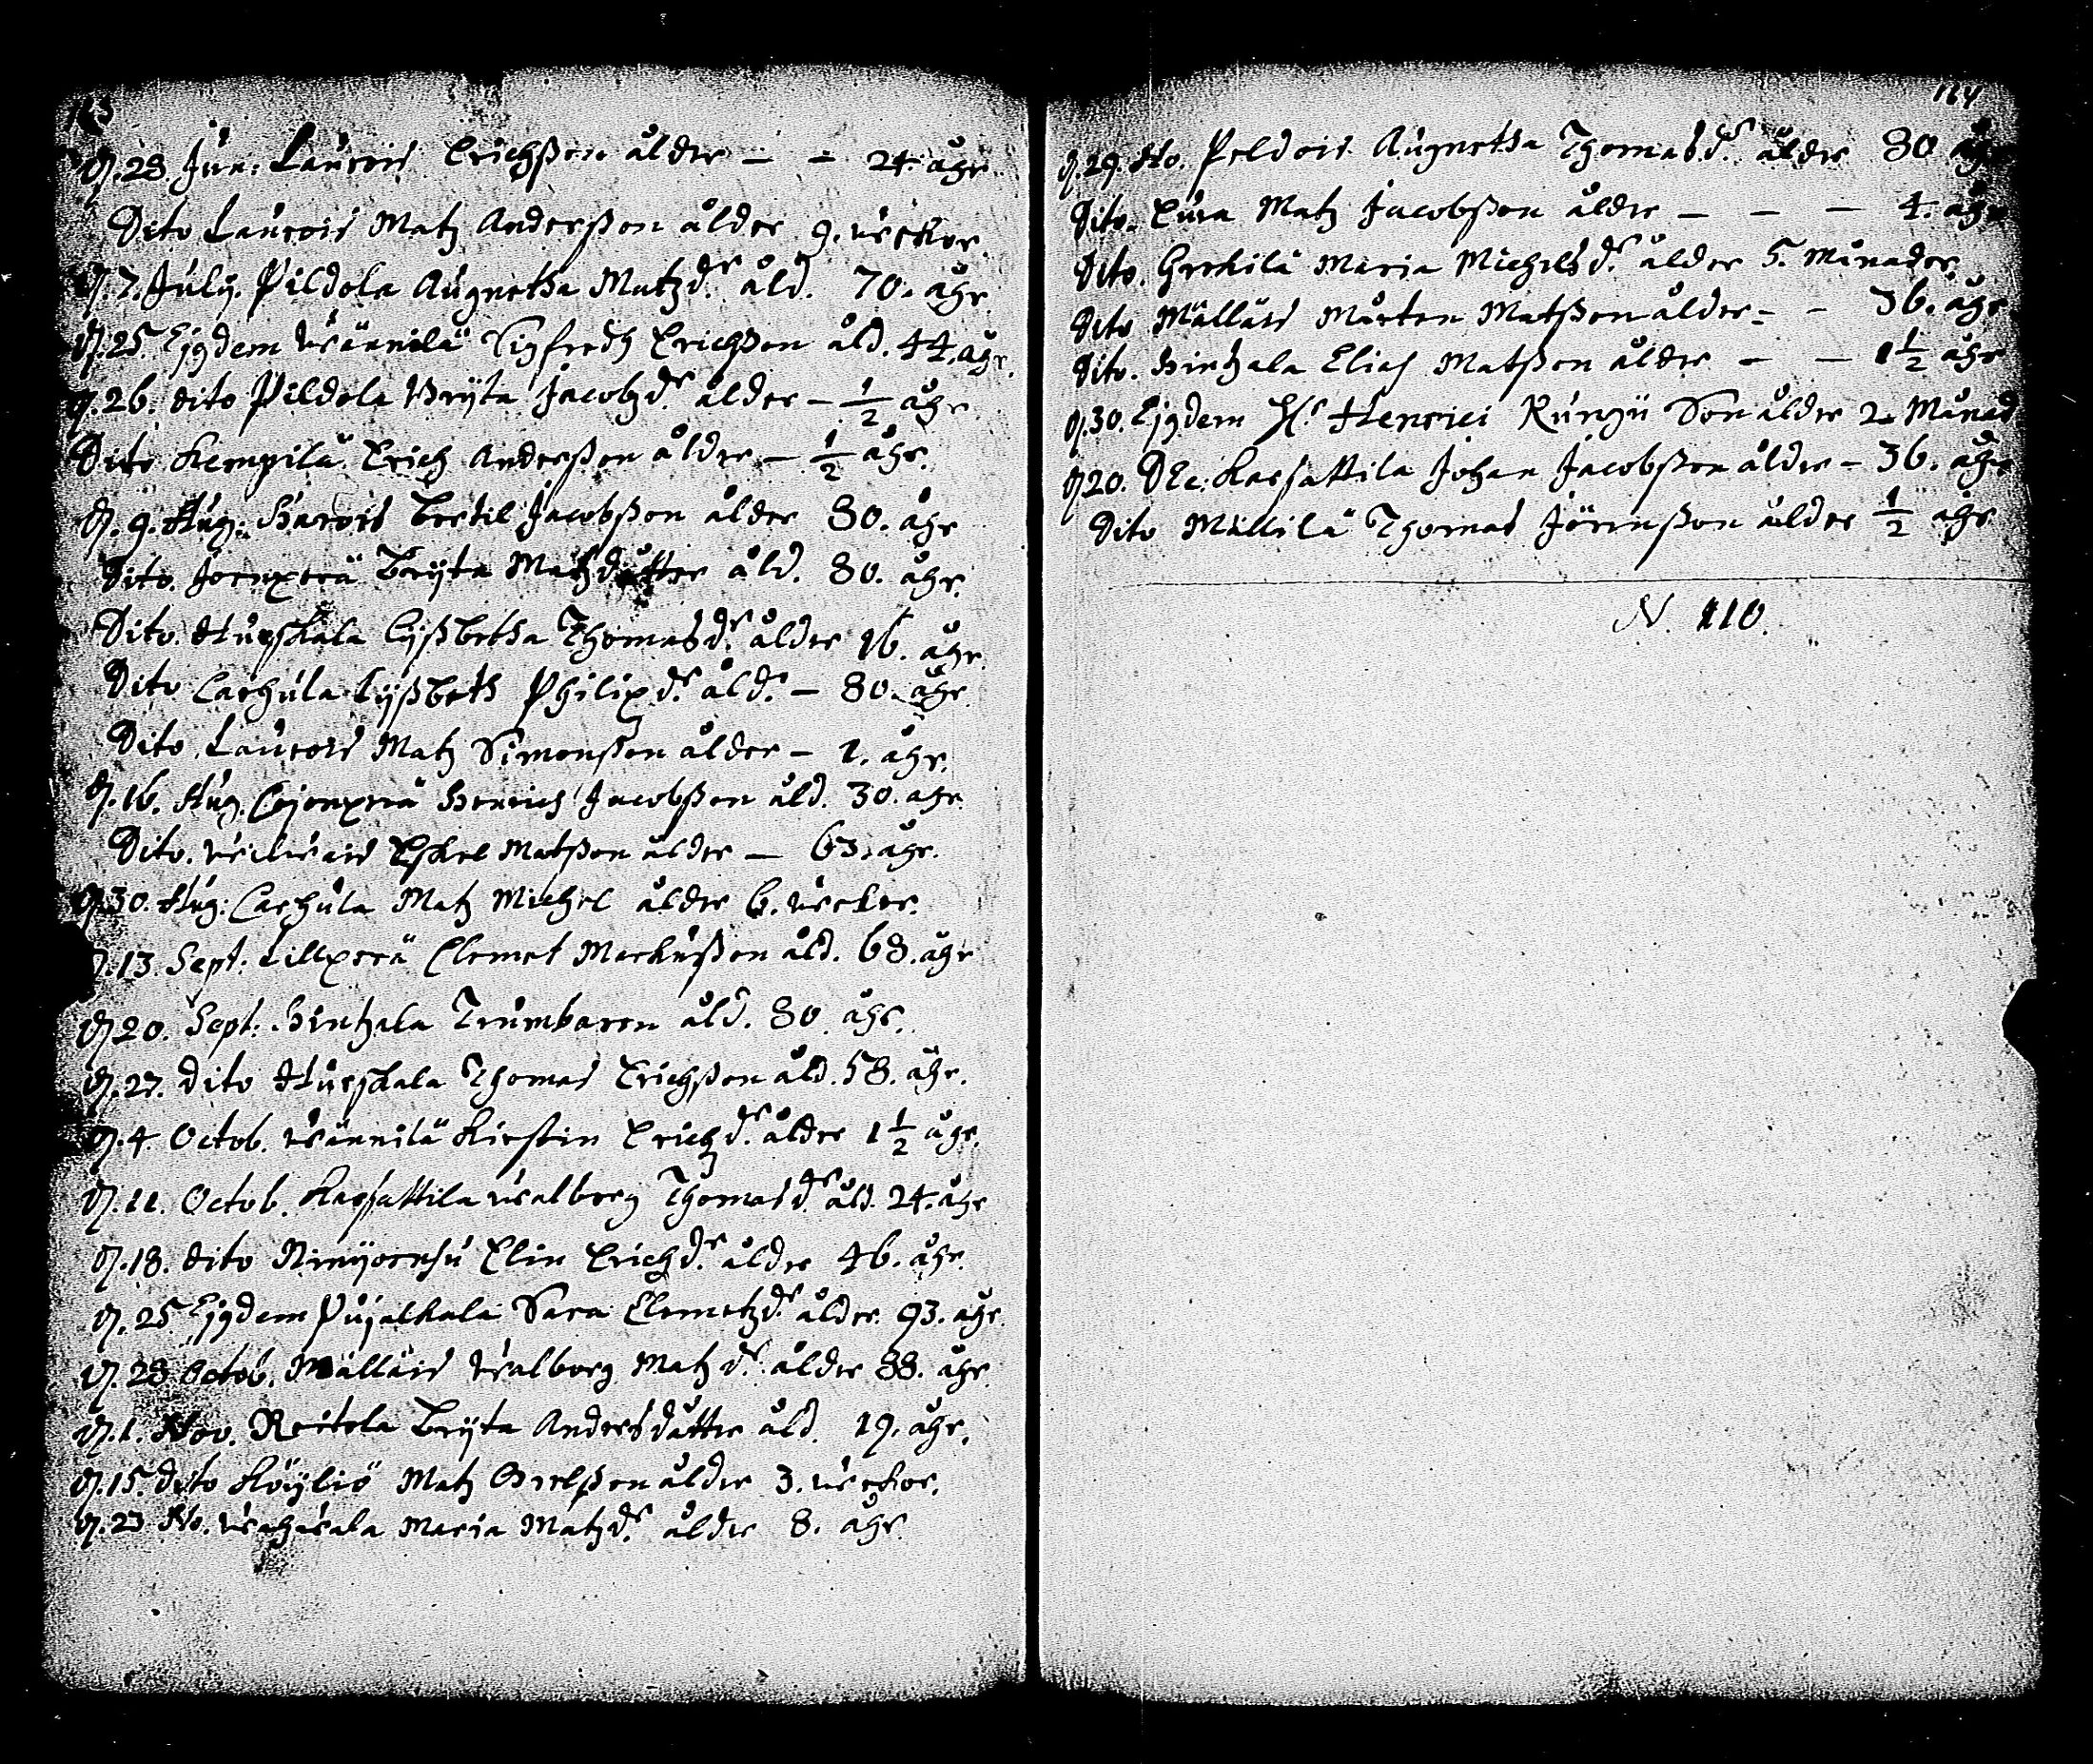 163
D. 28. Jun: Laurois Erichßon ålder — — 24. åhr.
Dito Laurois Matz Anderßon ålder 9. weckor.
D. 7. July. Pildola Augnetha Matzdr. åld. 70. åhr.
D. 25. Ejgdem Wännilä Sigfredh Erichßon åld. 44. åhr.
D. 26. dito Pildola Brijta Jacobzdr. ålder — ½ åhr.
Dito Kempilä Erich Anderßon ålder — ½ åhr.
D. 9. Aug: Harois Bertil Jacobßon ålder 80. åhr
Dito. Joenperä Brijta Matzdåtter åld. 80. åhr.
Dito. Hurskala Lijßbetha Thomasdr. ålder 16. åhr.
Dito Carhula Lijßbeth Philipzdr. åld. — 80. åhr.
Dito Laurois Matz Simonßon ålder — 1. åhr.
D. 16. Aug. Ojenperä Henrich Jacobßon åld. 30. åhr.
Dito. Eskel Matßon ålder — 63. åhr.
D. 30. Aug: Carhula Matz Michel ålder 6. weckor.
D. 13. Sept: Lillperä Clemet Markußon åld. 68. åhr
D. 20. Sept. Hintzala Trumbaren åld. 80. åhr.
D. 27. dito Hurskala Thomas Erichßon åld. 58. åhr.
D. 4. Octob. Wännilä Kirstin Erichzdr. ålder 1½ åhr.
D. 11. Octob. Karsattila Walborg Thomasdr. åld. 24. åhr
D. 18. dito Elin Erichdr. ålder 46. åhr.
D. 25 Ejgdem Pujalkala Sara Clemetzdr. ålder. 93. åhr.
D. 28 Octob. Mälläis Walborg Matzdr. ålder 88. åhr.
D. 1. Nov. Reitola Brijta Andersdåtter åld. 19. åhr.
D. 15. dito Köyliö Matz Grelßon ålder 3. weckor.
D. 23 No. Maria Matzdr. ålder 8. åhr.
164
D. 29. No. Peldois Augnetha Thomasdr. ålder 80 åhr
Dito. Eura Matz Jacobßon ålder — — — 4. åhr
Dito. Gerkilä Maria Michelsdr. ålder 5. Månader.
Dito Mälläis Mårten Matßon ålder — — 36. åhr
Dito. Hintzala Elias Matßon ålder — — 1½ åhr
D. 30. Ejgdem Hr. Henrici Rungii Son ålder 2 Månad
D 20. Dec. Karsattila Johan Jacobßon ålder — 36. åhr
Dito Mällilä Thomas Jörenßon ålder ½ åhr
N. 110.